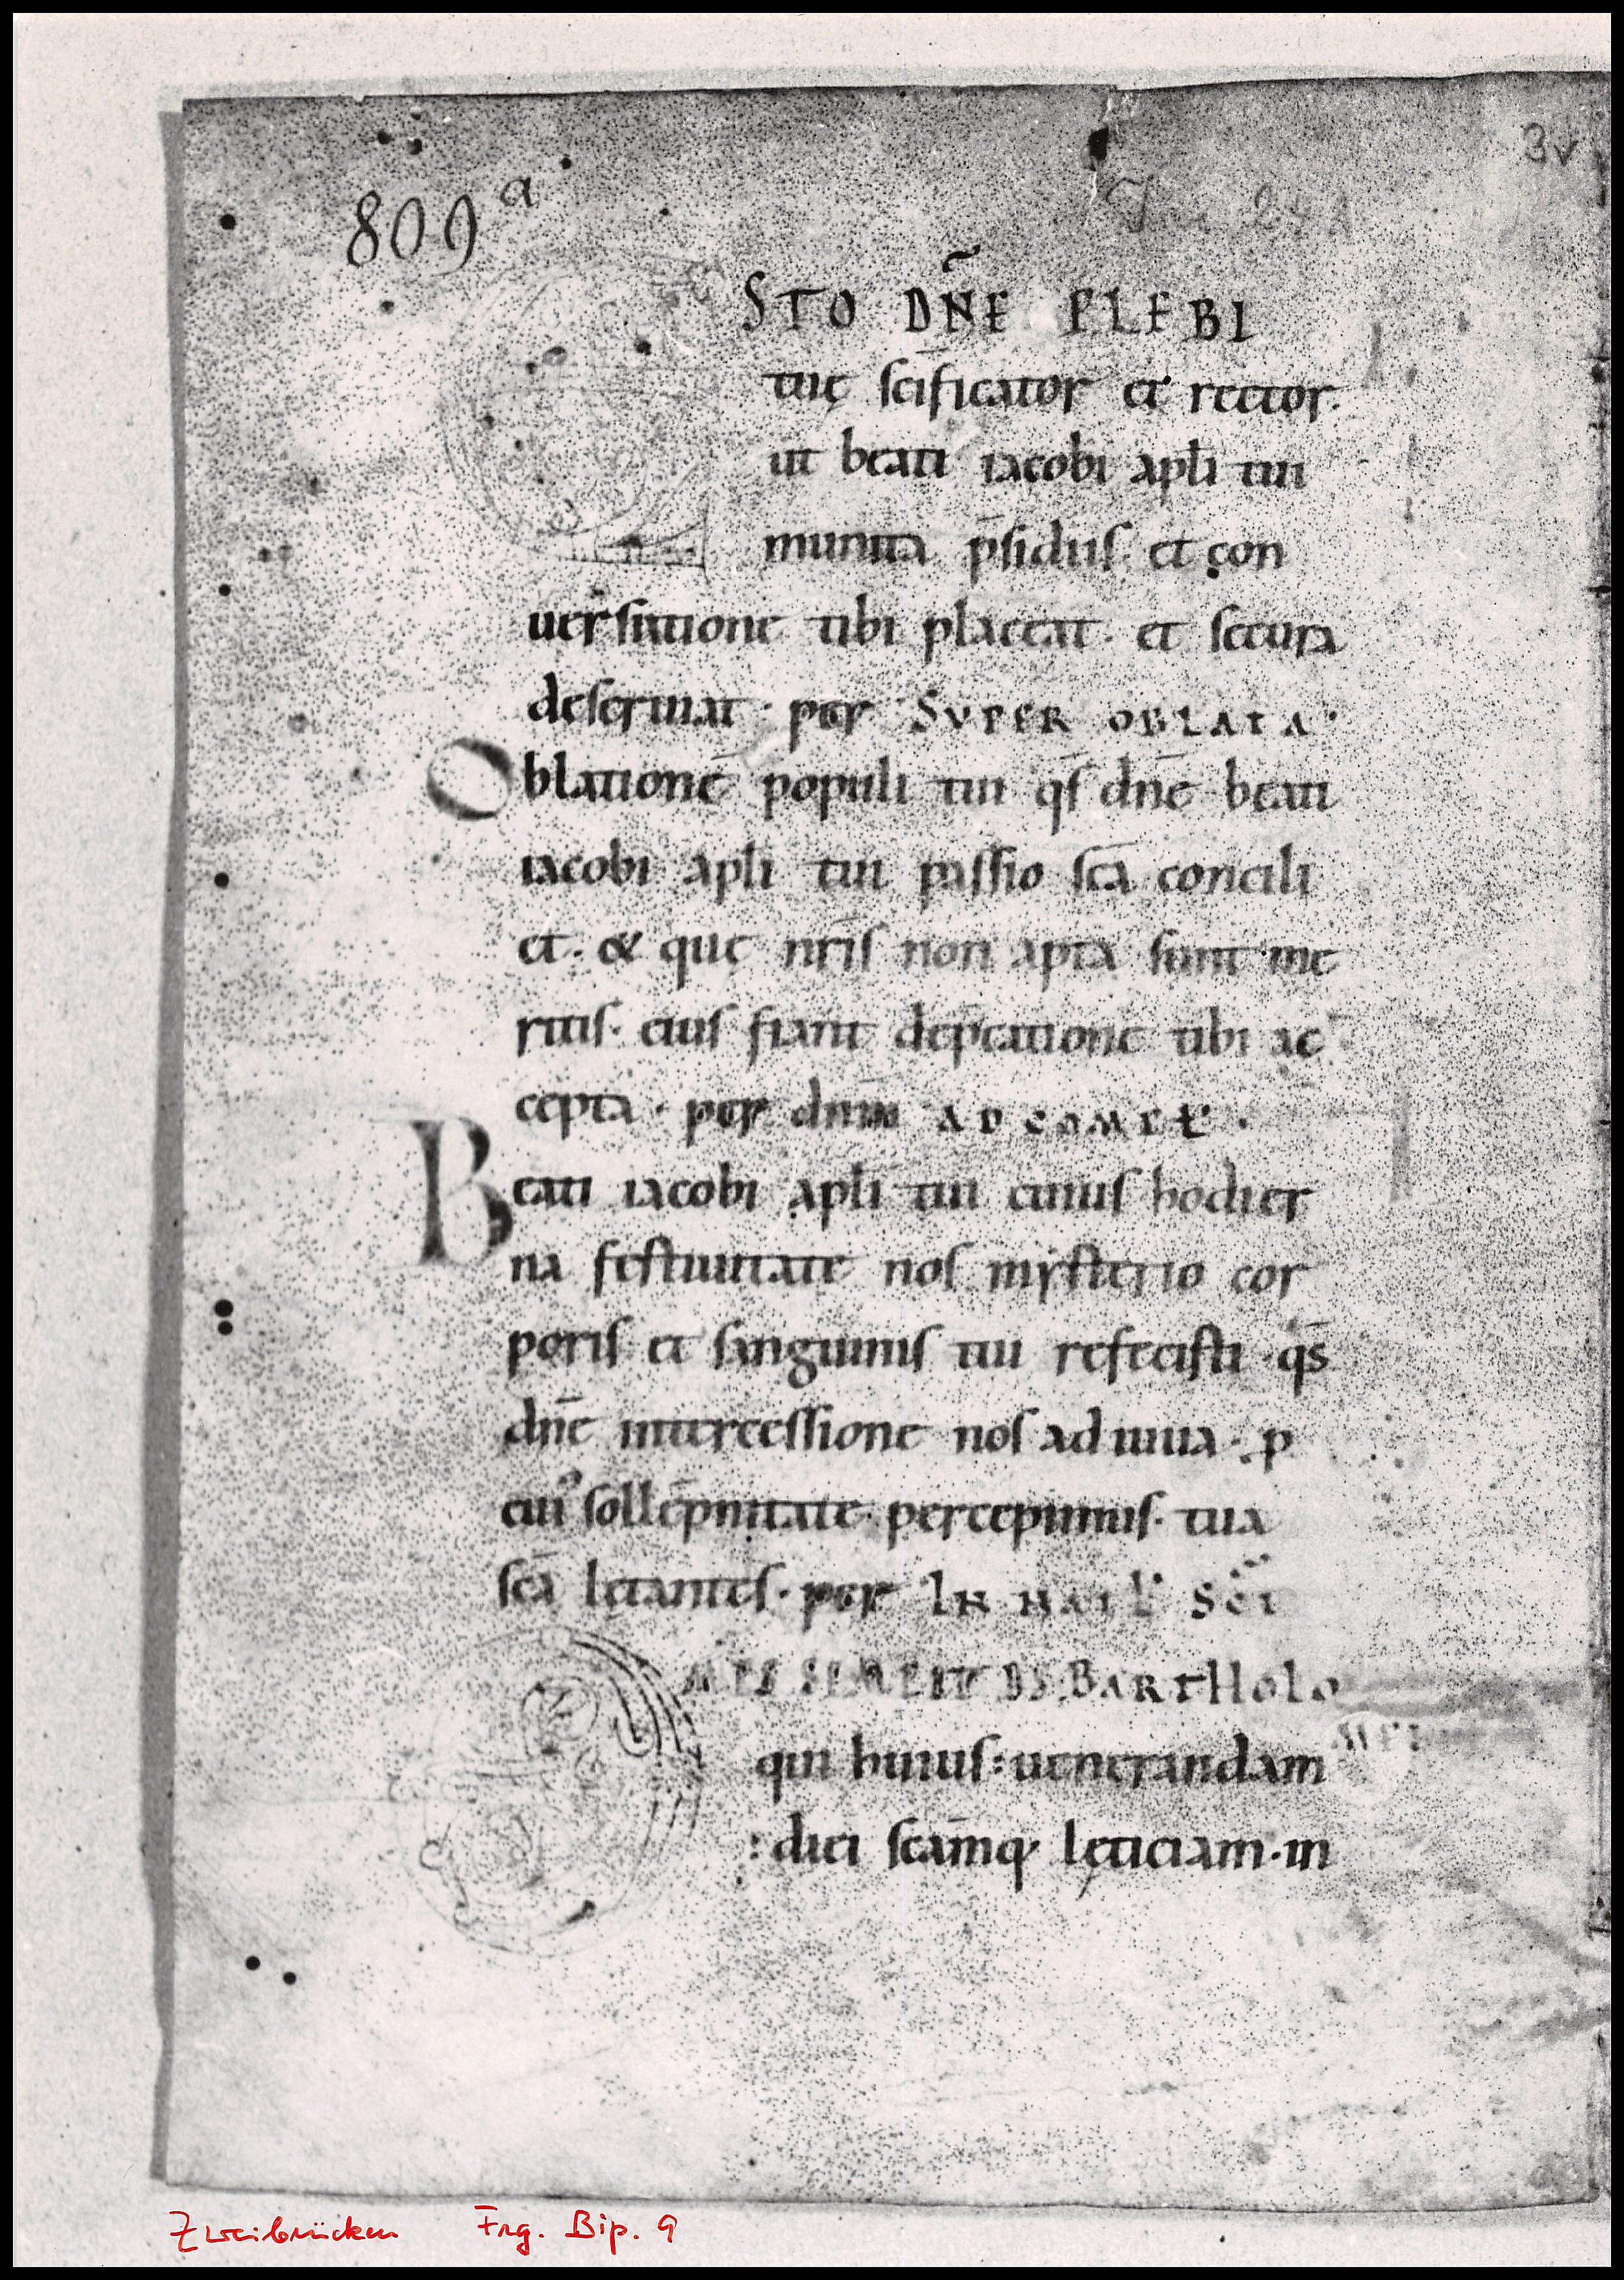 3v
809a
ESTO DN̄E PLEBI
tuę sc̄ificator et rector.
ut beati iacobi apl̄i tui
munita p̄sidiis. et con
uersatione tibi placeat. et secura
deseruiat. per SUPER OBLATA.
Oblationē populi tui qs̄ dn̄e beati
iacobi apl̄i tui passio sc̄a concili
et. & quę nr̄is non apta sunt me
ritis. eius fiant dep̄catione tibi ac
cepta. per dn̄m AD COMPL̄.
Beati iacobi apl̄i tui cuius hodier
na festiuitate nos mysterio cor
poris et sanguinis tui refecisti. qs̄
dn̄e intercessione nos adiuua. p
cui᾽ sollēpnitate percepimus. tua
sc̄a lętantes. per IN NATL̄ SC̄I
BARTHOLO
MEI
qui huius: uenerandam
: diei sc̄amq; lęticiam. in
Zweibrücken Frg. Bip. 9